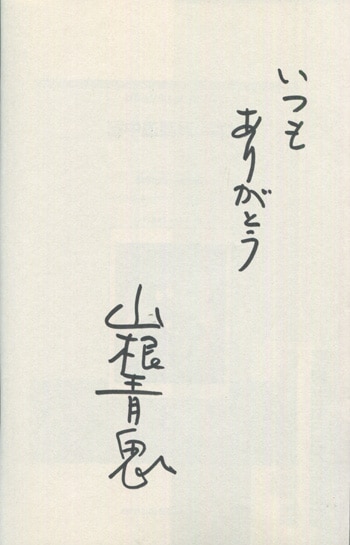 いつも
ありがとう
山根青鬼